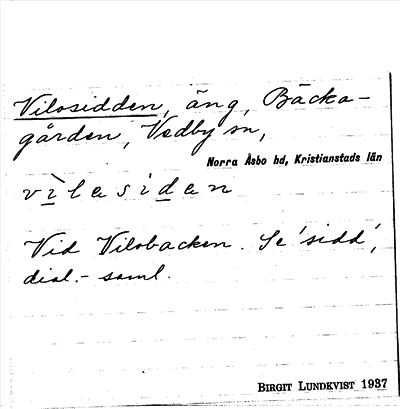 Vilosidden, äng, Bäcka-
gården, Vedby sn,
Norra Åsbo hd, Kristianstads län
vìlasìdan
Vid Vilobacken. Se 'sidd',
dial.- saml.
BIRGIT LUNDKVIST 1937